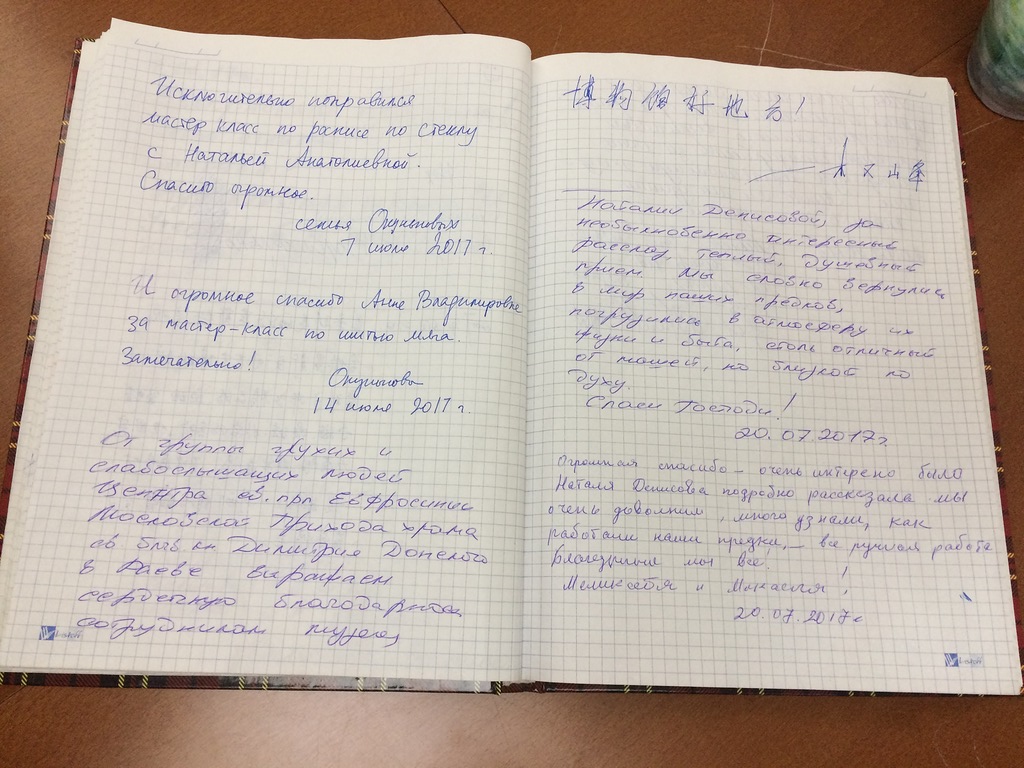 Исключительно понравился
мастер класс по росписи по стеклу
с Натальей Анатолиевной.
Спасибо огромное.
семья Окуньковых
7 июля 2017 г.
И огромное спасибо Анне Владимировне
за мастер-класс по шитью мяча.
Замечательно!
Окунькова
14 июля 2017 г.
От группы глухих и
слабослышащих людей
Центра св. прп Евфросинии
Московской Прихода храма
св блгв кн Димитрия Донского
в Раеве выражаем
сердечную благодарность
сотрудникам музея
Lista
博物馆好地方!
Наталии Денисовой, за
необыкновенно интересный
рассказ, теплый, душевный
прием. Мы словно вернулись
в мир наших предков,
погрузились в атмосферу их
жизни и быта, столь отличный
от нашей, но близкой по
духу.
Спаси Господи!
20.07.2017г.
Огромная спасибо – очень интерено было
Наталя Денисовва подробно рассказала мы
очень доволним, много узнали, как
работали наши предки, – все ручная работа
мы все!
и
20.07.2017г
Lista